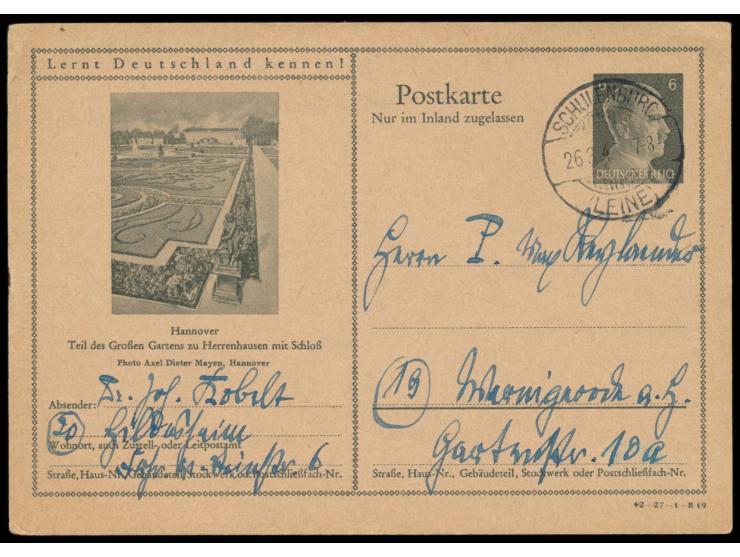 Lernt Deutschland kennen!
Hannover
Teil des Großen Gartens zu Herrenhausen mit Schloß
Photo Axel Dieter Mayen, Hannover
Absender: Dr. Joh. Kobelt
20 Hildesheim
Wohnort, auch Zustell- oder Leitpostamt
6
Straße, Haus-Nr., Gebäudeteil, Stockwerk od. Postschließfach-Nr.
Postkarte
Nur im Inland zugelassen
6
DEUTSCHES REICH
SCHULENBURG
26.3.4 7-8
(LEINE)
Herrn P. Max
19 Wernigerode a. H.
Gartenstr. 10a
Straße, Haus-Nr., Gebäudeteil, Stockwerk oder Postschließfach-Nr.
42—27—1—B 19